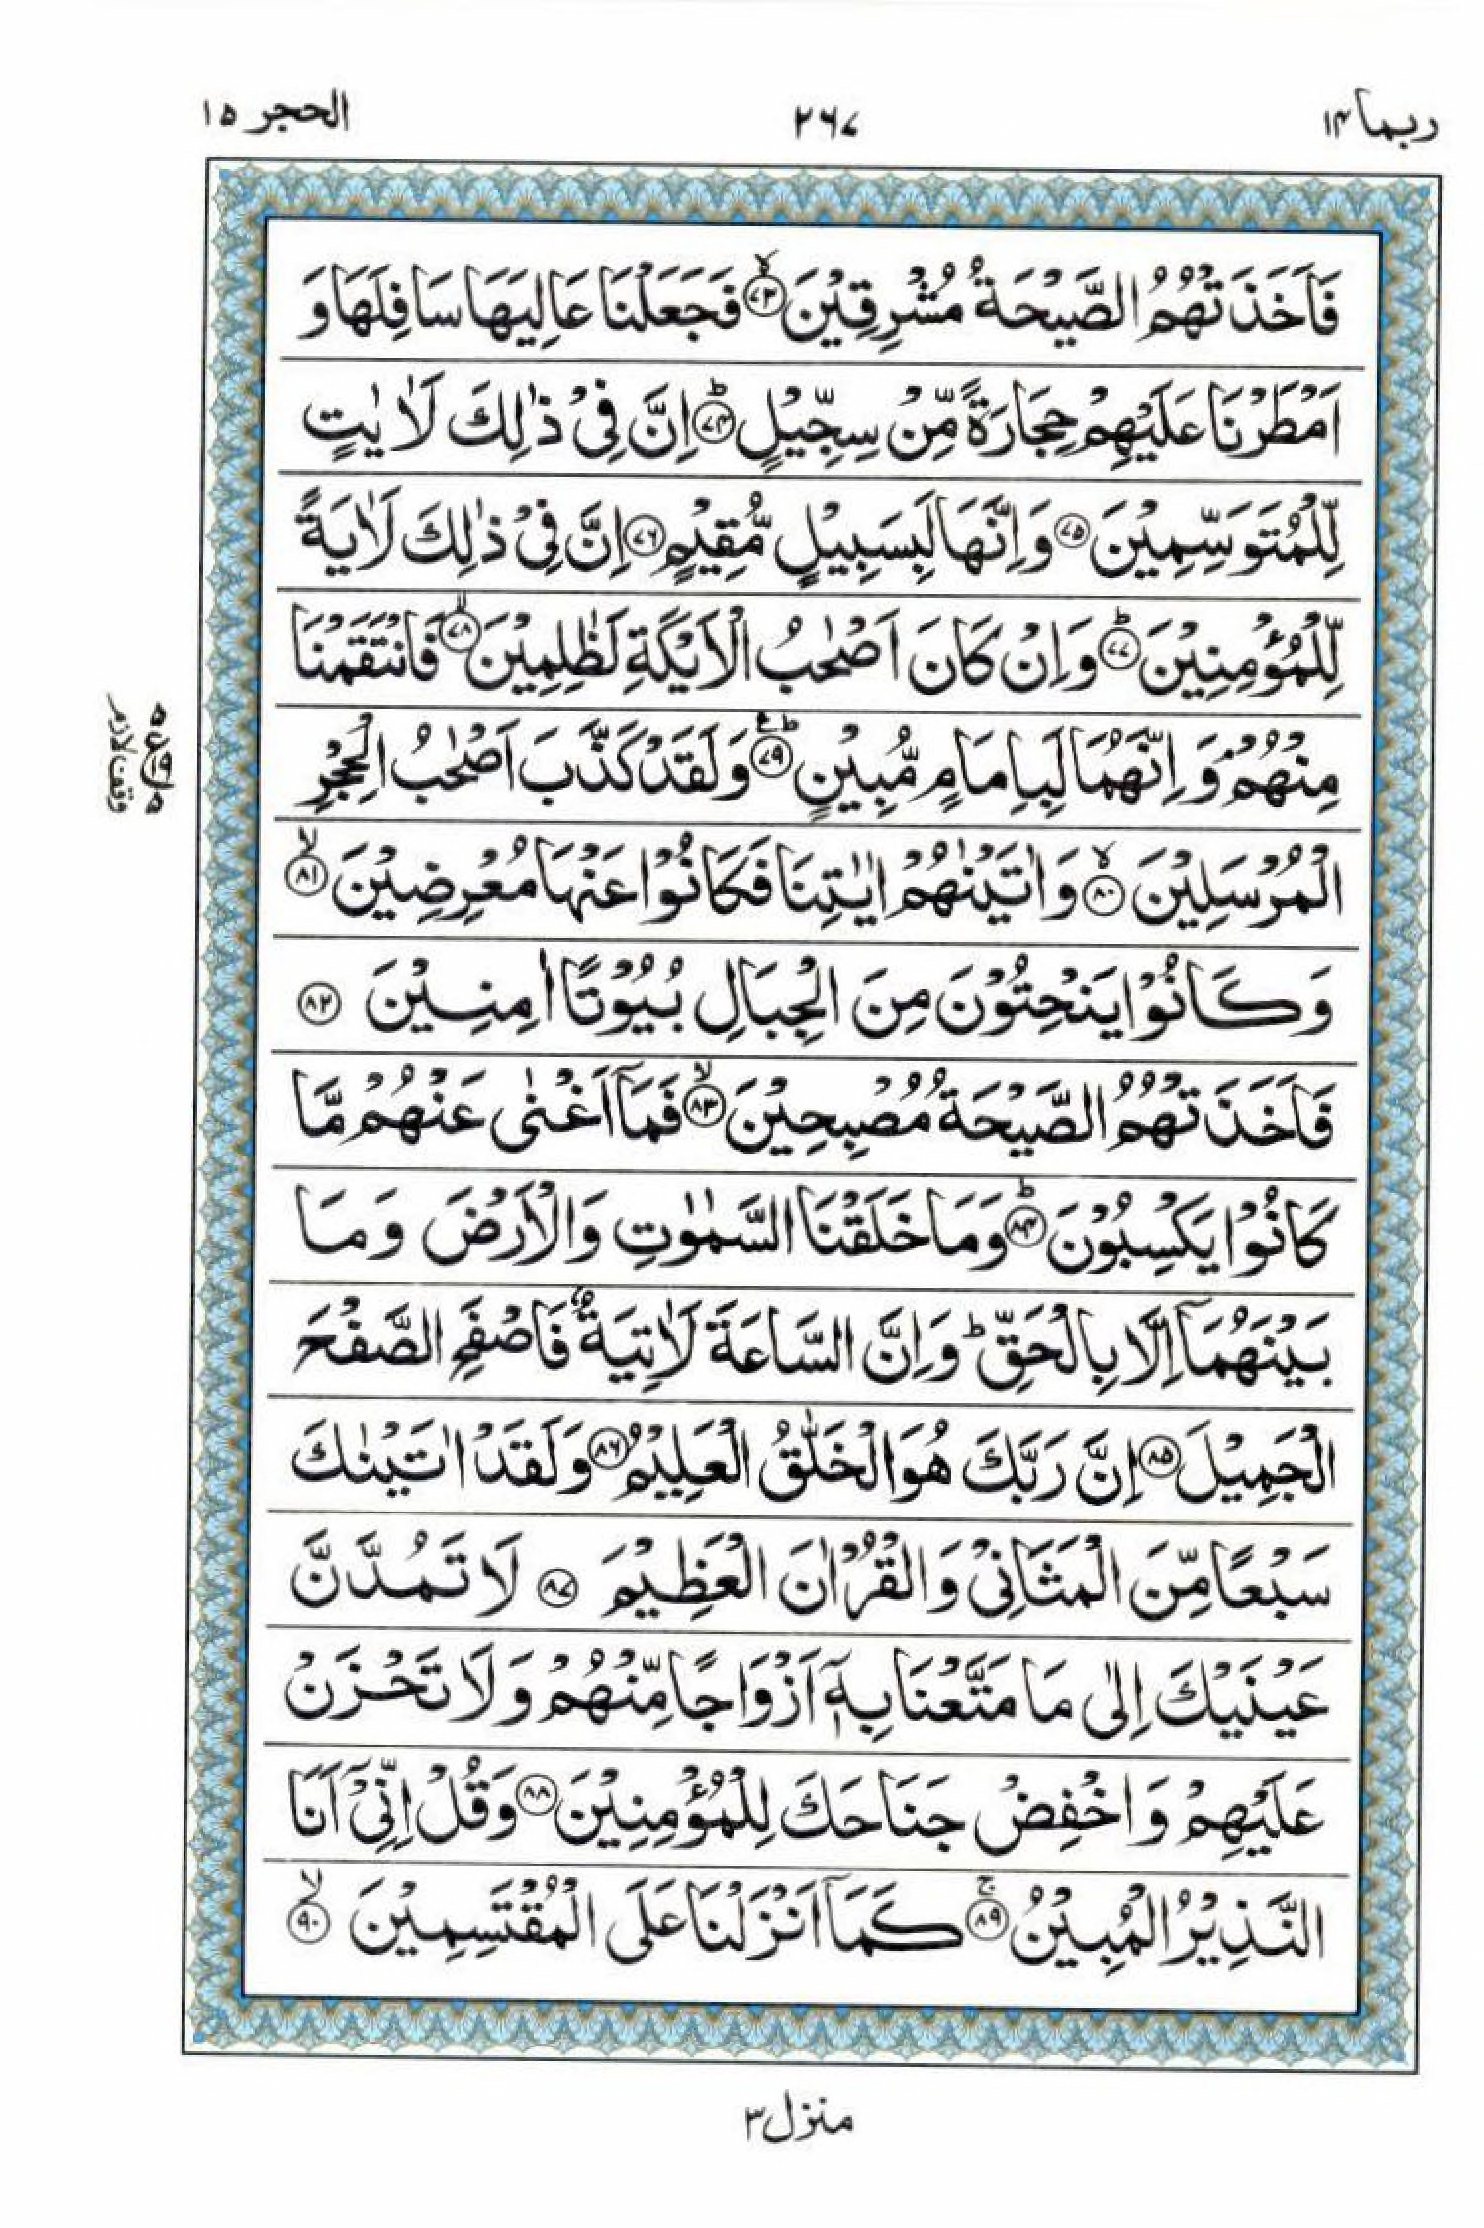 ربما ١٤
٢٦٧
الحجر ١٥
فَاَخَذَتْهُمُ الصَّيْحَةُ مُشْرِقِيْنَ ۙ‏﴿٧٣﴾ فَجَعَلْنَا عَالِيَهَا سَافِلَهَا وَ
اَمْطَرْنَا عَلَيْهِمْ حِجَارَةً مِّنْ سِجِّيْلٍ ؕ‏﴿٧٤﴾ اِنَّ فِيْ ذٰلِكَ لَاٰيٰتٍ
لِّلْمُتَوَسِّمِيْنَ ﴿٧٥﴾ وَاِنَّهَا لَبِسَبِيْلٍ مُّقِيْمٍ ﴿٧٦﴾ اِنَّ فِيْ ذٰلِكَ لَاٰيَةً
لِّلْمُؤْمِنِيْنَ ؕ‏﴿٧٧﴾ وَاِنْ كَانَ اَصْحٰبُ الْاَيْكَةِ لَظٰلِمِيْنَ ۙ‏﴿٧٨﴾ فَانْتَقَمْنَا
مِنْهُمْ ۘ وَاِنَّهُمَا لَبِاِمَامٍ مُّبِيْنٍ ؕ‏﴿٧٩﴾ وَلَقَدْ كَذَّبَ اَصْحٰبُ الْحِجْرِ
الْمُرْسَلِيْنَ ۙ‏﴿٨٠﴾ وَاٰتَيْنٰهُمْ اٰيٰتِنَا فَكَانُوْا عَنْهَا مُعْرِضِيْنَ ۙ‏﴿٨١﴾
وَكَانُوْا يَنْحِتُوْنَ مِنَ الْجِبَالِ بُيُوْتًا اٰمِنِيْنَ ﴿٨٢﴾
فَاَخَذَتْهُمُ الصَّيْحَةُ مُصْبِحِيْنَ ۙ‏﴿٨٣﴾ فَمَاۤ اَغْنٰى عَنْهُمْ مَّا
كَانُوْا يَكْسِبُوْنَ ؕ‏﴿٨٤﴾ وَمَا خَلَقْنَا السَّمٰوٰتِ وَالْاَرْضَ وَمَا
بَيْنَهُمَاۤ اِلَّا بِالْحَقِّ ؕ وَاِنَّ السَّاعَةَ لَاٰتِيَةٌ فَاصْفَحِ الصَّفْحَ
الْجَمِيْلَ ﴿٨٥﴾ اِنَّ رَبَّكَ هُوَ الْخَلّٰقُ الْعَلِيْمُ ﴿٨٦﴾ وَلَقَدْ اٰتَيْنٰكَ
سَبْعًا مِّنَ الْمَثَانِيْ وَالْقُرْاٰنَ الْعَظِيْمَ ﴿٨٧﴾ لَا تَمُدَّنَّ
عَيْنَيْكَ اِلٰى مَا مَتَّعْنَا بِهٖۤ اَزْوَاجًا مِّنْهُمْ وَلَا تَحْزَنْ
عَلَيْهِمْ وَاخْفِضْ جَنَاحَكَ لِلْمُؤْمِنِيْنَ ﴿٨٨﴾ وَقُلْ اِنِّيْۤ اَنَا
النَّذِيْرُ الْمُبِيْنُ ۚ‏﴿٨٩﴾ كَمَاۤ اَنْزَلْنَا عَلَى الْمُقْتَسِمِيْنَ ۙ‏﴿٩٠﴾
وقف لازم
منزل ٣